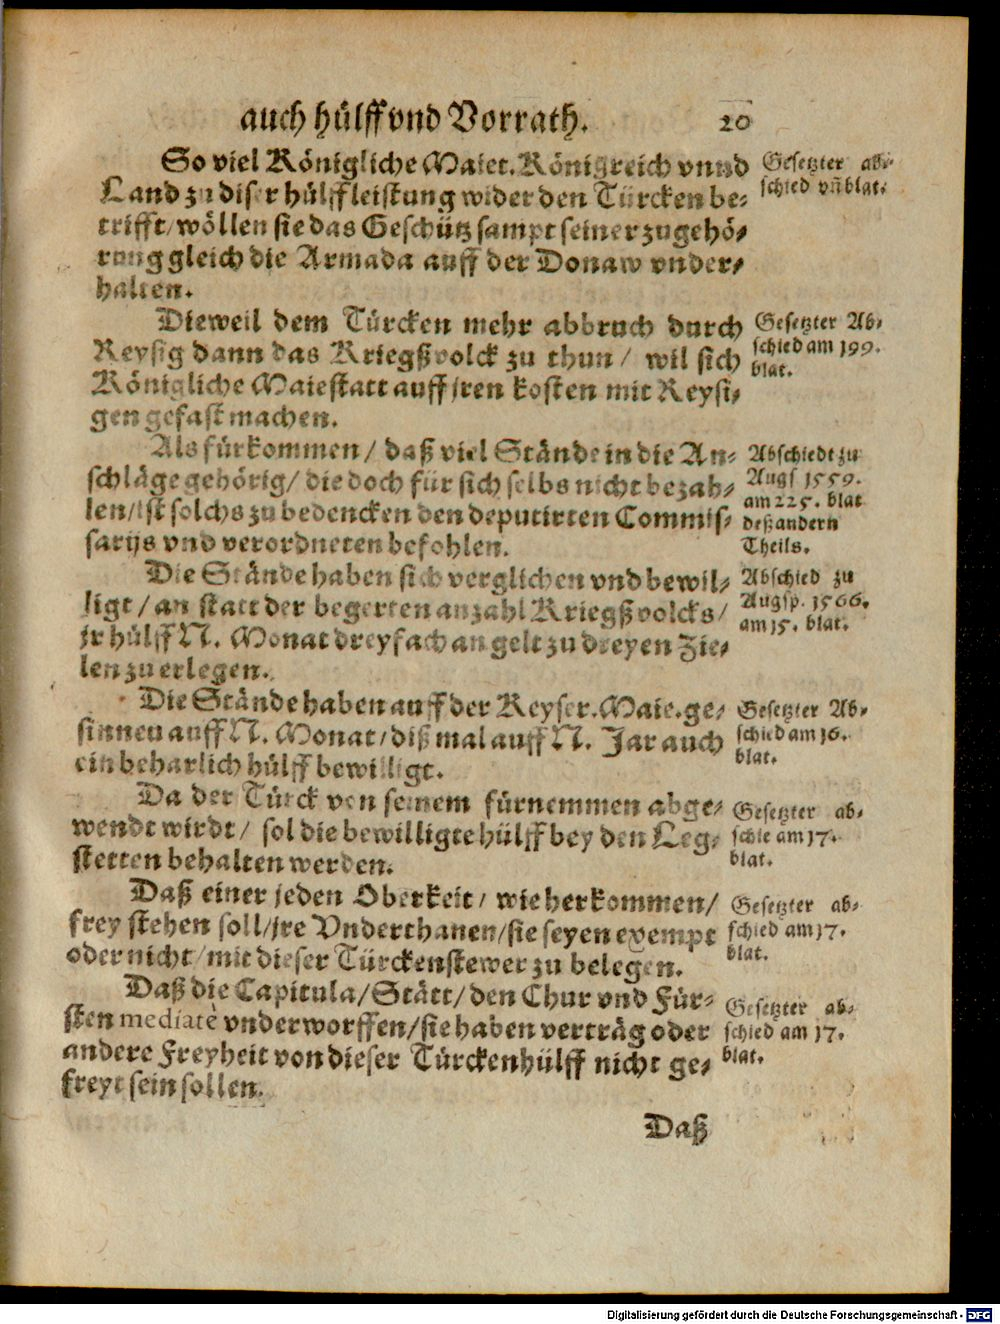 auch hülff vnd Vorrath. 20
So viel Königliche Maiet. Königreich vnnd
Land zu diser hülffleistung wider den Türcken be-
trifft/ wöllen sie das Geschütz sampt seiner zugehö-
rung gleich die Armada auff der Donaw vnder-
halten.
Gesetzter ab-
schied vñ blat.
Dieweil dem Türcken mehr abbruch durch
Reysig dann das Kriegßvolck zu thun/ wil sich
Königliche Maiestatt auff jren kosten mit Reysi-
gen gefast machen.
Gesetzter Ab-
schied am 199.
blat.
Als fürkommen/ daß viel Stände in die An-
schläge gehörig/ die doch für sich selbs nicht bezah-
len/ ist solchs zu bedencken den deputirten Commis-
sarijs vnd verordneten befohlen.
Abschiedt zu
Augs 1559.
am 225. blat
deß andern
Theils.
Die Stände haben sich verglichen vnd bewil-
ligt/ an statt der begerten anzahl Kriegßvolcks/
jr hülff N. Monat dreyfach an gelt zu dreyen Zie-
len zu erlegen.
Abschied zu
Augsp. 1566.
am 15. blat.
Die Stände haben auff der Keyser. Maie. ge-
sinnen auff N. Monat/ diß mal auff N. Jar auch
ein beharlich hülff bewilligt.
Gesetzter Ab-
schied am 16.
blat.
Da der Türck von seinem fürnemmen abge-
wendt wirdt/ sol die bewilligte hülff bey den Leg-
stetten behalten werden.
Gesetzter ab-
schie am 17.
blat.
Daß einer jeden Oberkeit/ wie herkommen/
frey stehen soll/ jre Vnderthanen/ sie seyen exempt
oder nicht/ mit dieser Türckenstewer zu belegen.
Gesetzter ab-
schied am 17.
blat.
Daß die Capitula/ Stätt/ den Chur vnd Für-
sten mediatè vnderworffen/ sie haben verträg oder
andere Freyheit von dieser Türckenhülff nicht ge-
freyt sein sollen.
Gesetzter ab-
schied am 17.
blat.
Daß
Digitalisierung gefördert durch die Deutsche Forschungsgemeinschaft - DFG